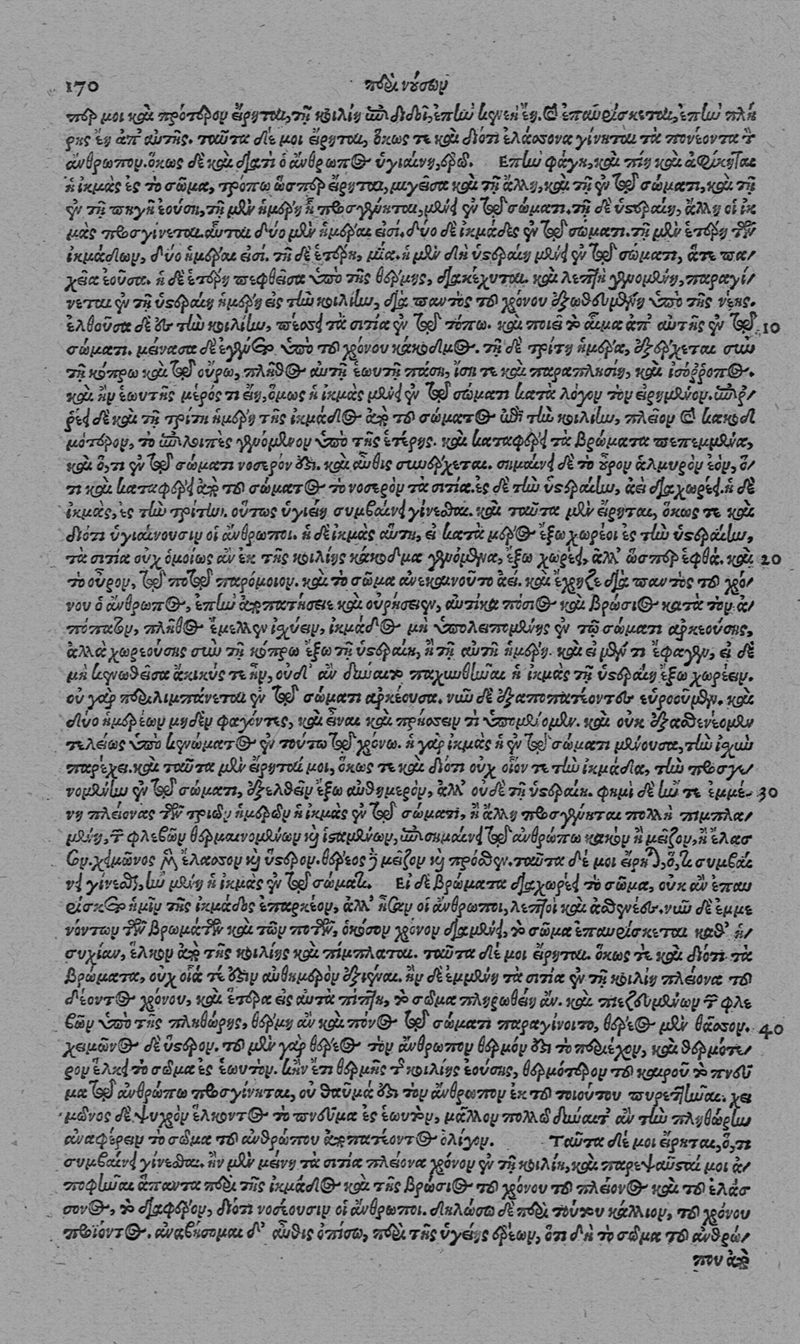 170 περὶ νούσων
περ μοι καὶ πρότερον εἴρηται, τῇ κοιλίῃ ἐπιδιδοῖ, ἐπὴν κενὴ ἔῃ. καὶ ἐπαυρίσκεται, ἐπὴν πλή/
ρης ἔῃ ἀπ' αὐτῆς. ταῦτα δέ μοι εἴρηται, ὅκως τε καὶ διότι ἐλάσσονα γίνηται τὰ πονέοντα τὸν
ἄνθρωπον. ὅκως δὲ καὶ διατὶ ὁ ἄνθρωπος ὑγιαίνῃ, ἐρῶ. Ἐπὴν φάγῃ, καὶ πίῃ καὶ ἀφίκηται
ἡ ἰκμὰς ἐς τὸ σῶμα, τρόπῳ ὥσπερ εἴρηται, μιγεῖσα καὶ τῇ ἄλλῃ, καὶ τῇ ἐν τῷ σώματι, καὶ τῇ
ἐν τῇ πηγῇ ἐούσῃ, τῇ μὲν ἡμέρῃ ᾗ προσγένηται, μένει ἐν τῷ σώματι. τῇ δὲ ὑστεραίῃ, ἄλλη οἱ ἰκ
μὰς προσγίνεται. αὗται δύο μὲν ἡμέραι εἰσί. δύο δὲ ἰκμάδες ἐν τῷ σώματι. τῇ μὲν ἑτέρῃ τῶν
ἰκμάδων, δύο ἡμέραι εἰσί. τῇ δὲ ἑτέρῃ, μία. ἡ μὲν δὴ ὑστεραίη μένει ἐν τῷ σώματι, ἅτε πα/
χεῖα ἐοῦσα. ἡ δὲ ἑτέρη πεφθεῖσα ὑπὸ τῆς θέρμης, διακέχυται. καὶ λεπτὴ γενομένη, παραγί/
νεται ἐν τῇ ὑστεραίῃ ἡμέρῃ εἰς τὴν κοιλίην, διὰ παντὸς τοῦ χρόνου ἐξωθευμένη ὑπὸ τῆς νέης.
ἐλθοῦσα δὲ ἐς τὴν κοιλίην, πέσσει τὰ σιτία ἐν τῷ τόπῳ. καὶ ποιεῖ τὸ αἷμα ἀπ' αὐτῆς ἐν τῷ 10
σώματι. μείνασα δὲ ἐγένετο ὑπὸ τοῦ χρόνου κάκοδμος. τῇ δὲ τρίτῃ ἡμέρᾳ, ἐξέρχεται σὺν
τῇ κόπρῳ καὶ τῷ οὔρῳ, πλῆθος αὐτὴ ἑωυτῇ πάσῃ, ἴση τε καὶ παραπλησίη, καὶ ἰσόρροπος.
καὶ ἢν ἑωυτῆς μέρος τι ἔῃ, ὅμως ἡ ἰκμὰς μένει ἐν τῷ σώματι κατὰ λόγον τὸν εἰρημένον. ἐπιρ/
ρεῖ δὲ καὶ τῇ τρίτῃ ἡμέρῃ τῆς ἰκμάδος ἀπὸ τοῦ σώματος ἐπὶ τὴν κοιλίην, πλεῖον καὶ κακοδ
μότερον, τὸ ἐπιλοιπὲς γενόμενον ὑπὸ τῆς ἑτέρης. καὶ καταφέρει τὰ βρώματα πεπεμμένα,
καὶ ὅ, τι ἐν τῷ σώματι νοσερόν ἐστι. καὶ αὖθις συνέρχεται. σημαίνει δὲ τὸ οὖρον ἁλμυρὸν ἐὸν, ὅ/
τι καὶ καταφέρει ἀπὸ τοῦ σώματος τὸ νοσερὸν τὰ σιτία. ἐς δὲ τὴν ὑστεραίην, ἀεὶ διαχωρεῖ. ἡ δὲ
ἰκμὰς, ἐς τὴν τρίτην. οὕτως ὑγιείη συμβαίνει γίνεσθαι. καὶ ταῦτα μὲν εἴρηται, ὅκως τε καὶ
διότι ὑγιαίνουσιν οἱ ἄνθρωποι. ἡ δὲ ἰκμὰς αὕτη, εἰ κατὰ μέρος ἔξω χωρέοι ἐς τὴν ὑστεραίην,
τὰ σιτία οὐχ ὁμοίως ἂν ἐκ τῆς κοιλίης κάκοδμα γενόμενα, ἔξω χωρέῃ, ἀλλ' ὥσπερ ἑφθά. καὶ 20
τὸ οὖρον, τῷ ποτῷ παρόμοιον. καὶ τὸ σῶμα ἀνεκαινοῦτο ἀεί. καὶ ἔχρῃζε διὰ παντὸς τοῦ χρό/
νου ὁ ἄνθρωπος, ἐπὴν ἀποπατήσειε καὶ οὐρήσειεν, αὐτίκα πόσιος καὶ βρώσιος κατὰ τὸν ἀ/
πόπατον, πλῆθος ἔμελλεν ἰσχύειν, ἰκμάδος μὴ ὑπολειπομένης ἐν τῷ σώματι ἀρκεούσης,
ἀλλὰ χωρεούσης σὺν τῇ κόπρῳ ἔξω τῇ ὑστεραίῃ, ἢ τῇ αὐτῇ ἡμέρῃ. καὶ εἰ μέν τι ἔφαγεν, εἰ δὲ
μὴ κενωθεῖσα ἄκικύς τε ἦν, οὐδ' ἂν δύναιτο παχυνθῆναι ἡ ἰκμὰς τῇ ὑστεραίῃ ἔξω χωρέειν.
οὐ γὰρ περιλιμπάνεται ἐν τῷ σώματι ἀρκέουσα. νῦν δὲ ἐξαποπατέοντες εὑροοῦμεν. καὶ
δύο ἡμερέων μηδὲν φαγόντες, καὶ εἶναι καὶ πρήσσειν τι ὑπομένομεν. καὶ οὐκ ἐξασθενέομεν
τελέως ὑπὸ κενώματος ἐν τούτῳ τῷ χρόνῳ. ἡ γὰρ ἰκμὰς ἡ ἐν τῷ σώματι μένουσα, τὴν ἰσχὺν
παρέχει. καὶ ταῦτα μὲν εἴρηταί μοι, ὅκως τε καὶ διότι οὐχ οἷόν τε τὴν ἰκμάδα, τὴν προσγε/
νομένην ἐν τῷ σώματι, ἐξελθεῖν ἔξω αὐθημερὸν, ἀλλ' οὐδὲ τῇ ὑστεραίῃ. φημὶ δὲ ἤν τε ἐμμέ/ 30
νῃ πλείονας τῶν τριῶν ἡμερῶν ἡ ἰκμὰς ἐν τῷ σώματι, ἢ ἄλλη προσγένηται πολλὴ πιμπλα/
μένη, τῶν φλεβῶν θερμαινομένων καὶ ἱσταμένων, ἐπισημαίνει τῷ ἀνθρώπῳ κακὸν ἢ μεῖζον, ἢ ἔλασ
σον. χειμῶνος μὲν ἔλασσον καὶ ὕστερον. θέρεος δὲ μεῖζον καὶ πρόσθεν. ταῦτα δέ μοι εἴρηται, ὅ, τι συμβαί
νει γίνεσθαι, ἢν μένῃ ἡ ἰκμὰς ἐν τῷ σώματι. Εἰ δὲ βρώματα διαχωρεῖ τὸ σῶμα, οὐκ ἂν ἐπαυ
ρίσκετο ἡμῖν τῆς ἰκμάδος ἐπαρκέον, ἀλλ' ἦσαν οἱ ἄνθρωποι, λεπτοὶ καὶ ἀσθενέες. νῦν δὲ ἐμμε
νόντων τῶν βρωμάτων καὶ τῶν ποτῶν, ὁκόσον χρόνον διαμένει, τὸ σῶμα ἐπαυρίσκεται καθ' ἡ/
συχίαν, ἕλκον ἀπὸ τῆς κοιλίης καὶ πίμπλαται. ταῦτα δέ μοι εἴρηται. ὅκως τε καὶ διότι τὰ
βρώματα, οὐχ οἷά τέ ἐστιν αὐθημερὸν ἐξιέναι. ἢν δὲ ἐμμένῃ τὰ σιτία ἐν τῇ κοιλίῃ πλείονα τοῦ
δέοντος χρόνου, καὶ ἕτερα εἰς αὐτὰ πίπτῃ, τὸ σῶμα πληρωθείη ἄν. καὶ πιεζευμένων τῶν φλε
βῶν ὑπὸ τῆς πληθώρης, θέρμη ἂν καὶ πόνος τῷ σώματι παραγίνοιτο, θέρεος μὲν θᾶσσον. 40
χειμῶνος δὲ ὕστερον. τοῦ μὲν γὰρ θέρεος τὸν ἄνθρωπον θερμόν ἐστι τὸ περιέχον, καὶ θερμότε/
ρον ἕλκει τὸ σῶμα ἐς ἑωυτόν. κἢν ἔτι θερμῆς τῆς κοιλίης ἐούσης, θερμότερον τοῦ καιροῦ τὸ πνεῦ
μα τῷ ἀνθρώπῳ προσγίνηται, οὐ θαῦμά ἐστι τὸν ἄνθρωπον ἐκ τοῦ τοιούτου πυρετῆναι. χει
μῶνος δὲ ψυχρὸν ἕλκοντος τὸ πνεῦμα ἐς ἑωυτὸν, μᾶλλον πολλῷ δύναιτ' ἂν τὴν πληθώρην
ἀναφέρειν τὸ σῶμα τοῦ ἀνθρώπου ἀποπατέοντος ὀλίγον. Ταῦτα δέ μοι εἴρηται, ὅ, τι
συμβαίνει γίνεσθαι. ἢν μὲν μείνῃ τὰ σιτία πλείονα χρόνον ἐν τῇ κοιλίῃ, καὶ παρεψαῦσταί μοι ἀ/
ποφῆναι ἅπαντα περὶ τῆς ἰκμάδος καὶ τῆς βρώσιος τοῦ χρόνου τοῦ πλείονος καὶ τοῦ ἐλάσ
σονος, τὸ διαφέρον, διότι νοσέουσιν οἱ ἄνθρωποι. δηλώσω δὲ περὶ τούτου κάλλιον, τοῦ χρόνου
προϊόντος. ἀναβήσομαι δ' αὖθις ὀπίσω, περὶ τῆς ὑγείης ἐρέων, ὅτι δὴ τὸ σῶμα τοῦ ἀνθρώ/
που ἀπὸ